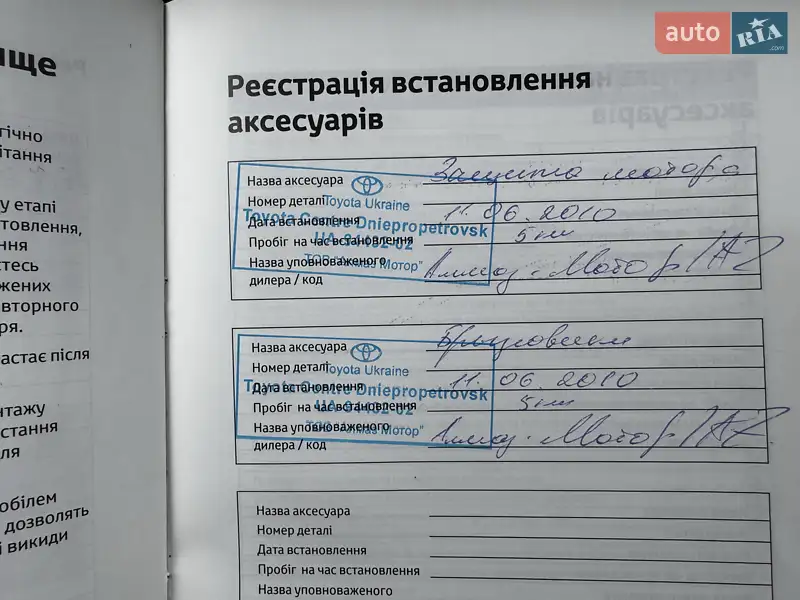 auto RIA .com
ище
гічно
ітання
у етапі
отовлення,
ення
єтесь
жених
овторного
ря.
астає після
нтажу
остання
ля
обілем
дозволять
і викиди
Реєстрація встановлення
аксесуарів
Назва аксесуара Защита мотора
Номер деталі
Дата встановлення 11.06.2010
Пробіг на час встановлення 5 км
Назва уповноваженого Алмаз-Мотор/
дилера / код
Toyota Ukraine
Toyota Centre Dniepropetrovsk
Мотор"
Назва аксесуара Брызговики
Номер деталі
Дата встановлення 11.06.2010
Пробіг на час встановлення 5 км
Назва уповноваженого Алмаз-Мотор/
дилера / код
Toyota Ukraine
Toyota Centre Dniepropetrovsk
Мотор"
Назва аксесуара
Номер деталі
Дата встановлення
Пробіг на час встановлення
Назва уповноваженого